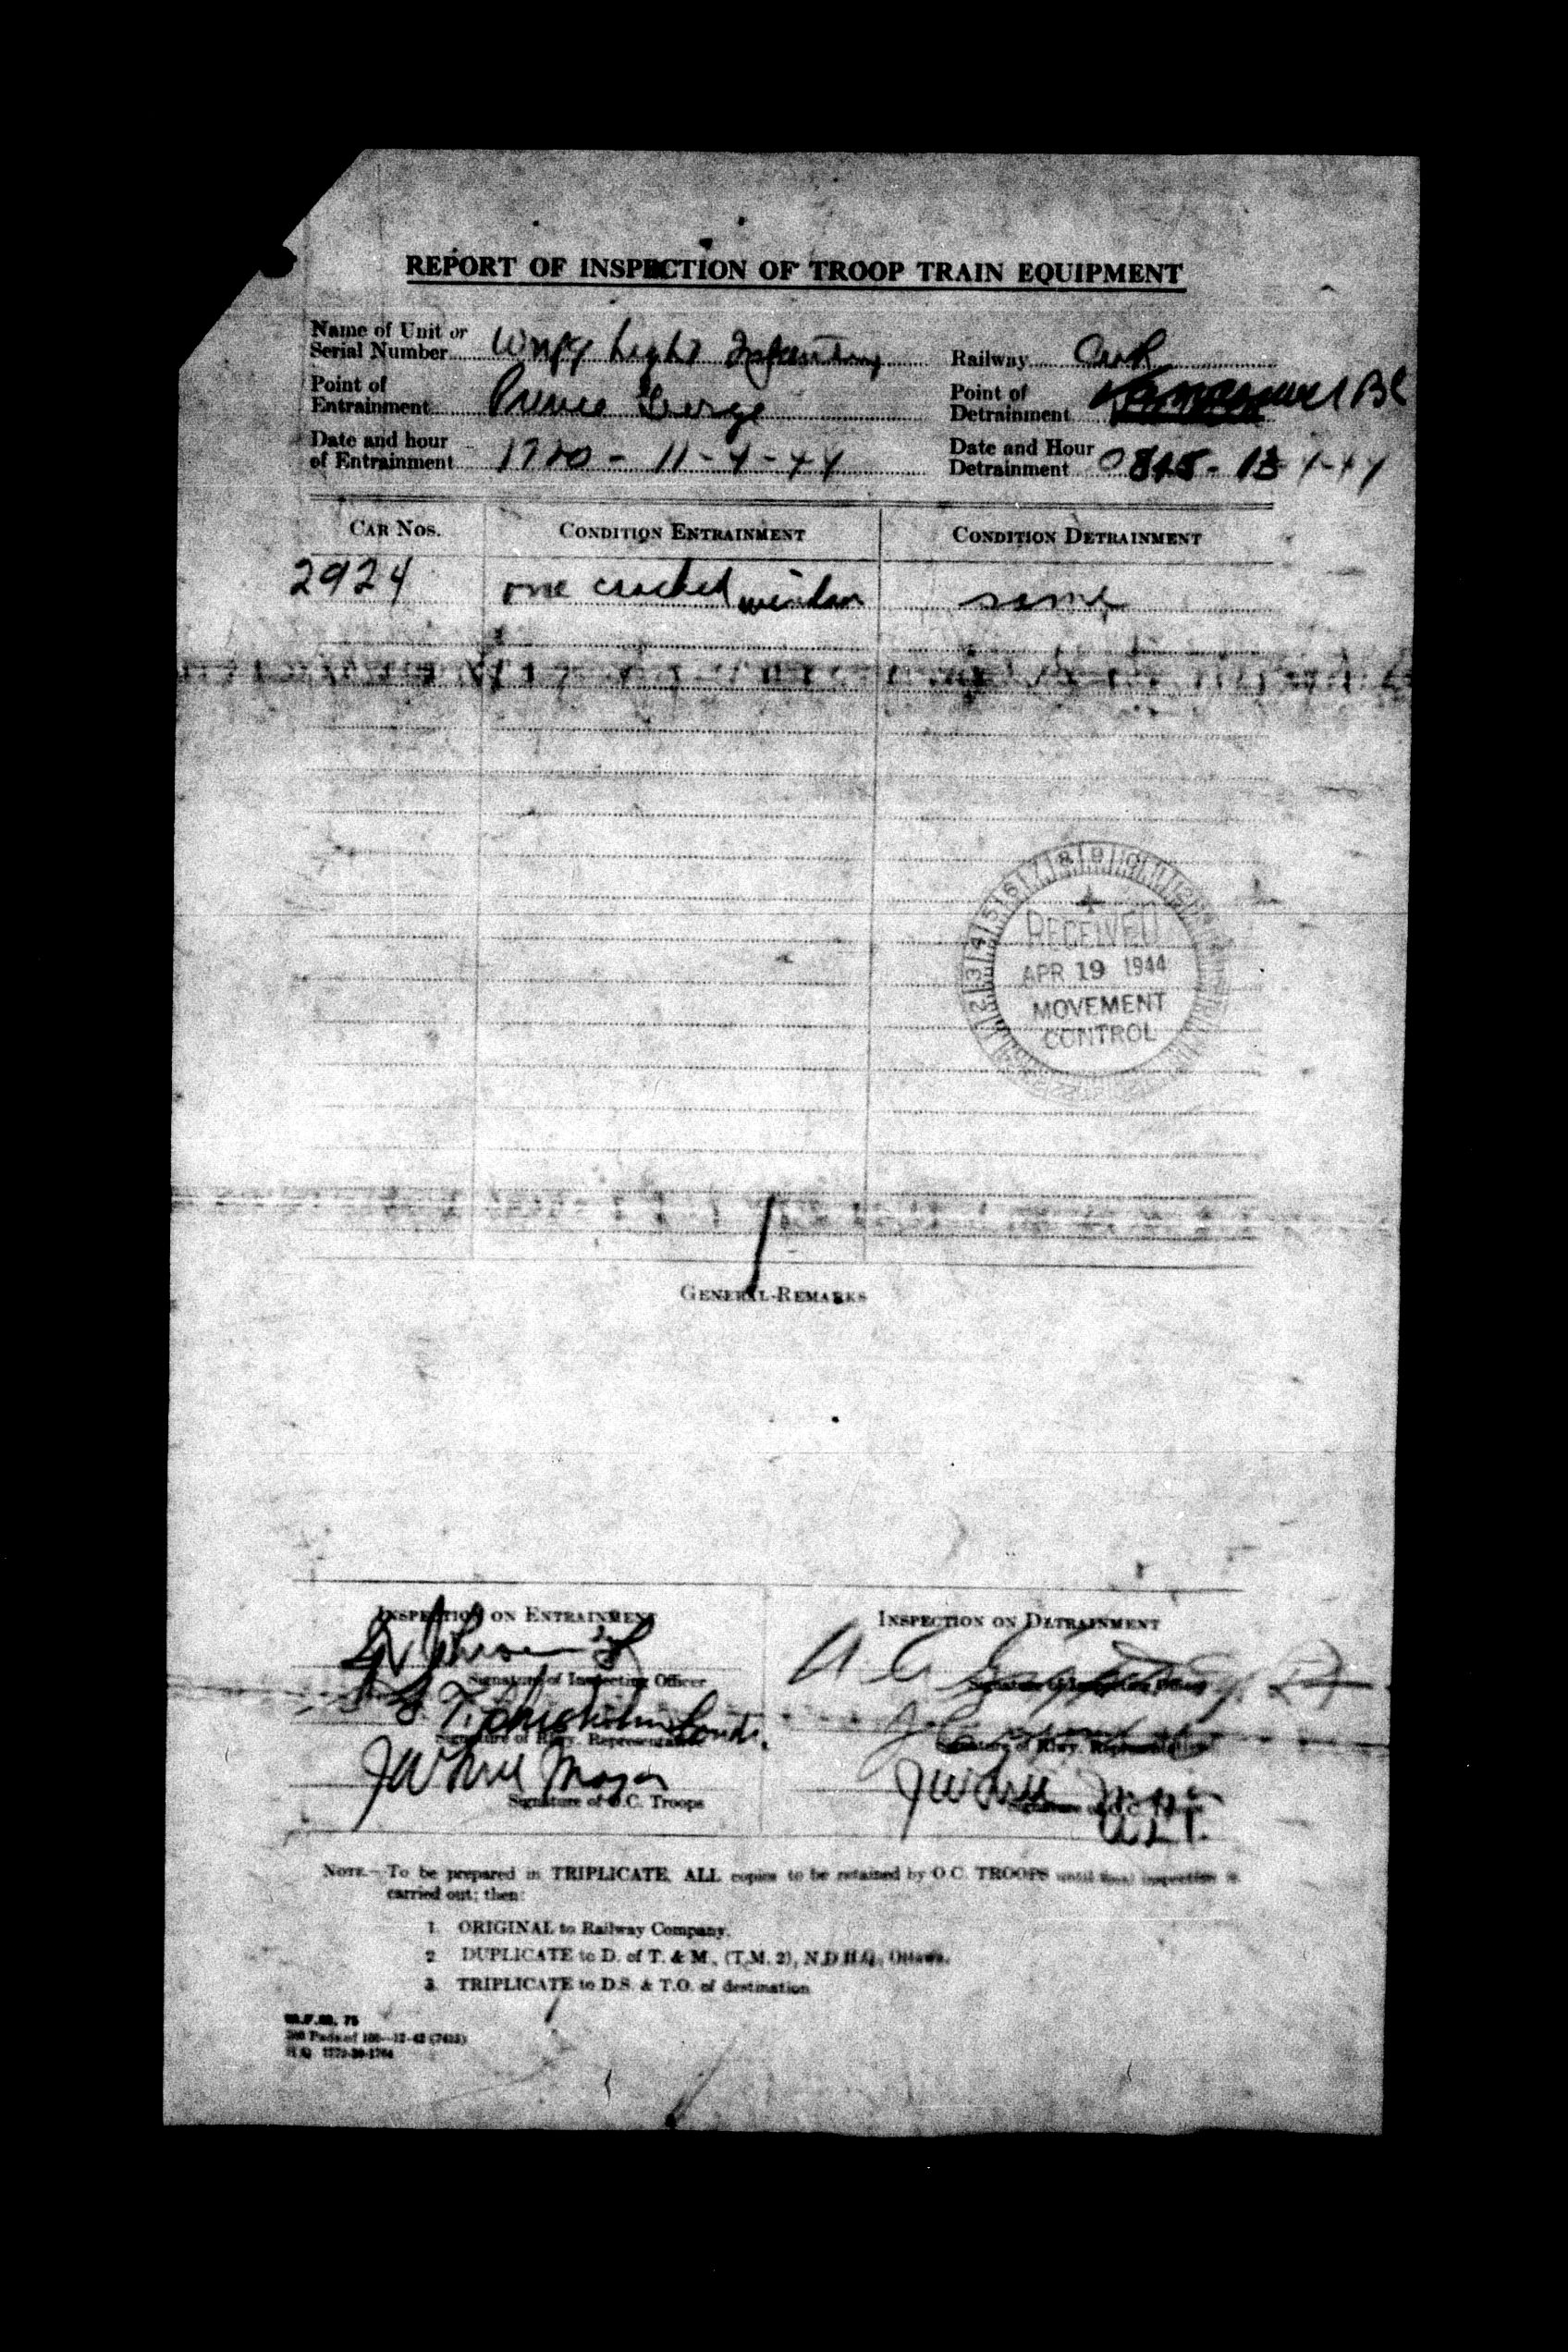 REPORT OF INSPECTION OF TROOP TRAIN EQUIPMENT
Name of Unit or
Serial Number Wnpg Light Infantry Railway CNR
Point of
Entrainment Prince George
Point of
Detrainment BC
Date and hour
of Entrainment 1720 - 11-4-44
Date and Hour
Detrainment 0815 - 13-4-44
CAR NOS. CONDITION ENTRAINMENT CONDITION DETRAINMENT
2924 one cracked window same
RECEIVED
APR 19 1944
MOVEMENT
CONTROL
GENERAL REMARKS
INSPECTION ON ENTRAINMENT INSPECTION ON DETRAINMENT
Signature of Inspecting Officer Signature of Inspecting Officer
Signature of Rlwy. Representative Signature of Rlwy. Representative
Major
Signature of O.C. Troops Signature of O.C. Troops
NOTE.—To be prepared in TRIPLICATE, ALL copies to be retained by O.C. TROOPS until final inspection is
carried out; then:
1. ORIGINAL to Railway Company.
2. DUPLICATE to D. of T. & M., (T.M. 2), N.D.H.Q., Ottawa.
3. TRIPLICATE to D.S. & T.O. of destination